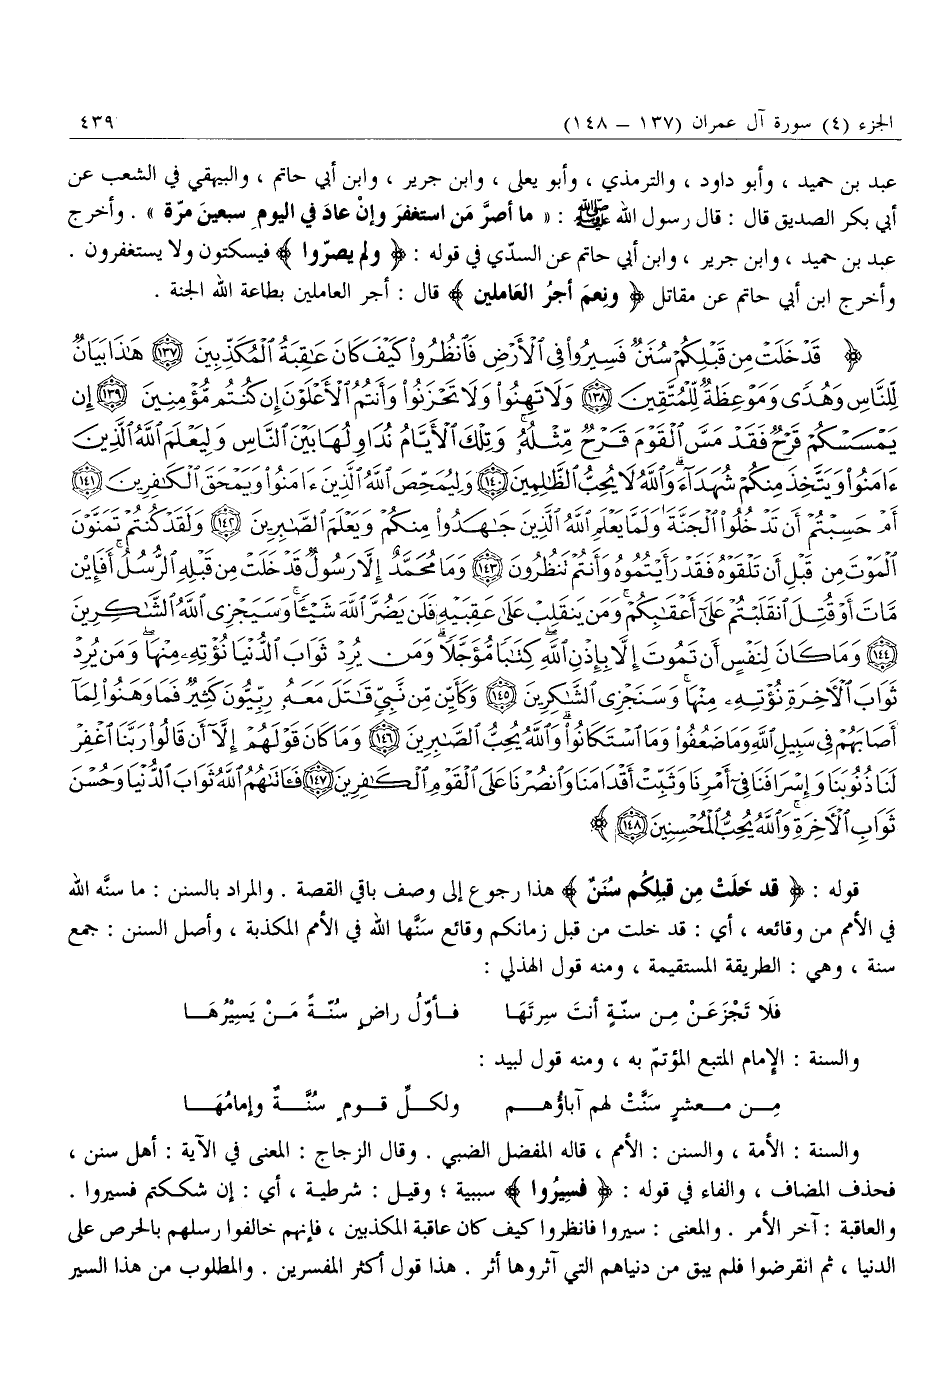 الجزء (٤) سورة آل عمران (١٣٧ – ١٤٨) ٤٣٩
عبد بن حميد ، وأبو داود ، والترمذي ، وأبو يعلى ، وابن جرير ، وابن أبي حاتم ، والبيهقي في الشعب عن
أبي بكر الصديق قال : قال رسول الله ﷺ : « ما أصرَّ مَن استغفرَ وإنْ عادَ في اليومِ سبعينَ مرّة » . وأخرج
عبد بن حميد ، وابن جرير ، وابن أبي حاتم عن السدّي في قوله : ﴿ ولم يصرّوا ﴾ فيسكتون ولا يستغفرون .
وأخرج ابن أبي حاتم عن مقاتل ﴿ ونِعمَ أجرُ العَاملين ﴾ قال : أجر العاملين بطاعة الله الجنة .
﴿ قَدۡ خَلَتۡ مِن قَبۡلِكُمۡ سُنَنٞ فَسِيرُواْ فِي ٱلۡأَرۡضِ فَٱنظُرُواْ كَيۡفَ كَانَ عَٰقِبَةُ ٱلۡمُكَذِّبِينَ ١٣٧ هَٰذَا بَيَانٞ
لِّلنَّاسِ وَهُدٗى وَمَوۡعِظَةٞ لِّلۡمُتَّقِينَ ١٣٨ وَلَا تَهِنُواْ وَلَا تَحۡزَنُواْ وَأَنتُمُ ٱلۡأَعۡلَوۡنَ إِن كُنتُم مُّؤۡمِنِينَ ١٣٩ إِن
يَمۡسَسۡكُمۡ قَرۡحٞ فَقَدۡ مَسَّ ٱلۡقَوۡمَ قَرۡحٞ مِّثۡلُهُۥۚ وَتِلۡكَ ٱلۡأَيَّامُ نُدَاوِلُهَا بَيۡنَ ٱلنَّاسِ وَلِيَعۡلَمَ ٱللَّهُ ٱلَّذِينَ
ءَامَنُواْ وَيَتَّخِذَ مِنكُمۡ شُهَدَآءَۗ وَٱللَّهُ لَا يُحِبُّ ٱلظَّٰلِمِينَ ١٤٠ وَلِيُمَحِّصَ ٱللَّهُ ٱلَّذِينَ ءَامَنُواْ وَيَمۡحَقَ ٱلۡكَٰفِرِينَ ١٤١
أَمۡ حَسِبۡتُمۡ أَن تَدۡخُلُواْ ٱلۡجَنَّةَ وَلَمَّا يَعۡلَمِ ٱللَّهُ ٱلَّذِينَ جَٰهَدُواْ مِنكُمۡ وَيَعۡلَمَ ٱلصَّٰبِرِينَ ١٤٢ وَلَقَدۡ كُنتُمۡ تَمَنَّوۡنَ
ٱلۡمَوۡتَ مِن قَبۡلِ أَن تَلۡقَوۡهُ فَقَدۡ رَأَيۡتُمُوهُ وَأَنتُمۡ تَنظُرُونَ ١٤٣ وَمَا مُحَمَّدٌ إِلَّا رَسُولٞ قَدۡ خَلَتۡ مِن قَبۡلِهِ ٱلرُّسُلُۚ أَفَإِيْن
مَّاتَ أَوۡ قُتِلَ ٱنقَلَبۡتُمۡ عَلَىٰٓ أَعۡقَٰبِكُمۡۚ وَمَن يَنقَلِبۡ عَلَىٰ عَقِبَيۡهِ فَلَن يَضُرَّ ٱللَّهَ شَيۡـٔٗاۗ وَسَيَجۡزِي ٱللَّهُ ٱلشَّٰكِرِينَ
١٤٤ وَمَا كَانَ لِنَفۡسٍ أَن تَمُوتَ إِلَّا بِإِذۡنِ ٱللَّهِ كِتَٰبٗا مُّؤَجَّلٗاۗ وَمَن يُرِدۡ ثَوَابَ ٱلدُّنۡيَا نُؤۡتِهِۦ مِنۡهَا وَمَن يُرِدۡ
ثَوَابَ ٱلۡأٓخِرَةِ نُؤۡتِهِۦ مِنۡهَاۚ وَسَنَجۡزِي ٱلشَّٰكِرِينَ ١٤٥ وَكَأَيِّن مِّن نَّبِيّٖ قَٰتَلَ مَعَهُۥ رِبِّيُّونَ كَثِيرٞ فَمَا وَهَنُواْ لِمَآ
أَصَابَهُمۡ فِي سَبِيلِ ٱللَّهِ وَمَا ضَعُفُواْ وَمَا ٱسۡتَكَانُواْۗ وَٱللَّهُ يُحِبُّ ٱلصَّٰبِرِينَ ١٤٦ وَمَا كَانَ قَوۡلَهُمۡ إِلَّآ أَن قَالُواْ رَبَّنَا ٱغۡفِرۡ
لَنَا ذُنُوبَنَا وَإِسۡرَافَنَا فِيٓ أَمۡرِنَا وَثَبِّتۡ أَقۡدَامَنَا وَٱنصُرۡنَا عَلَى ٱلۡقَوۡمِ ٱلۡكَٰفِرِينَ ١٤٧ فَـَٔاتَىٰهُمُ ٱللَّهُ ثَوَابَ ٱلدُّنۡيَا وَحُسۡنَ
ثَوَابِ ٱلۡأٓخِرَةِۗ وَٱللَّهُ يُحِبُّ ٱلۡمُحۡسِنِينَ ١٤٨ ﴾
قوله : ﴿ قد خَلَتْ مِن قبلِكُم سُنَنٌ ﴾ هذا رجوع إلى وصف باقي القصة . والمراد بالسنن : ما سنَّه الله
في الأمم من وقائعه ، أي : قد خلت من قبل زمانكم وقائع سَنَّها الله في الأمم المكذبة ، وأصل السنن : جمع
سنة ، وهي : الطريقة المستقيمة ، ومنه قول الهذلي :
فَلَا تَجْزَعَنْ مِن سنّةٍ أنتَ سِرتَهَا فـأوّلُ راضٍ سُنّةً مَنْ يَسِيْرُهَا
والسنة : الإمام المتبع المؤتمّ به ، ومنه قول لبيد :
مِن معشرٍ سَنَّتْ لهم آباؤُهم ولكلِّ قومٍ سُنَّةٌ وإمامُهَا
والسنة : الأمة ، والسنن : الأمم ، قاله المفضل الضبي . وقال الزجاج : المعنى في الآية : أهل سنن ،
فحذف المضاف ، والفاء في قوله : ﴿ فسِيرُوا ﴾ سببية ؛ وقيل : شرطية ، أي : إن شككتم فسيروا .
والعاقبة : آخر الأمر . والمعنى : سيروا فانظروا كيف كان عاقبة المكذبين ، فإنهم خالفوا رسلهم بالحرص على
الدنيا ، ثم انقرضوا فلم يبق من دنياهم التي آثروها أثر . هذا قول أكثر المفسرين . والمطلوب من هذا السير